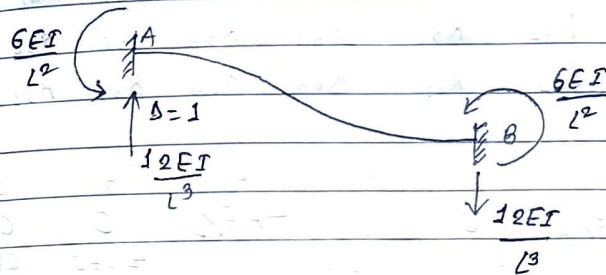 A
6EI
L²
Δ=1
12EI
L³
6EI
L²
B
12EI
L³